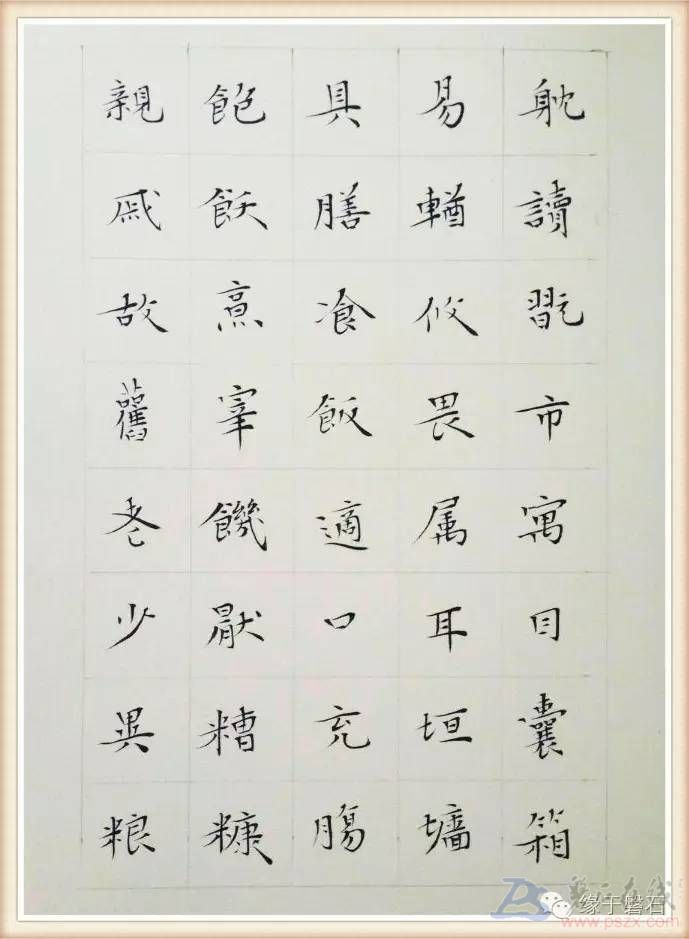 躭讀翫市寓目囊箱
易輶攸畏属耳垣墻
具膳飡飯適口充腸
飽飫烹宰饑厭糟糠
親戚故舊老少異粮
磐石在线
缘于磐石
www.pszx.com